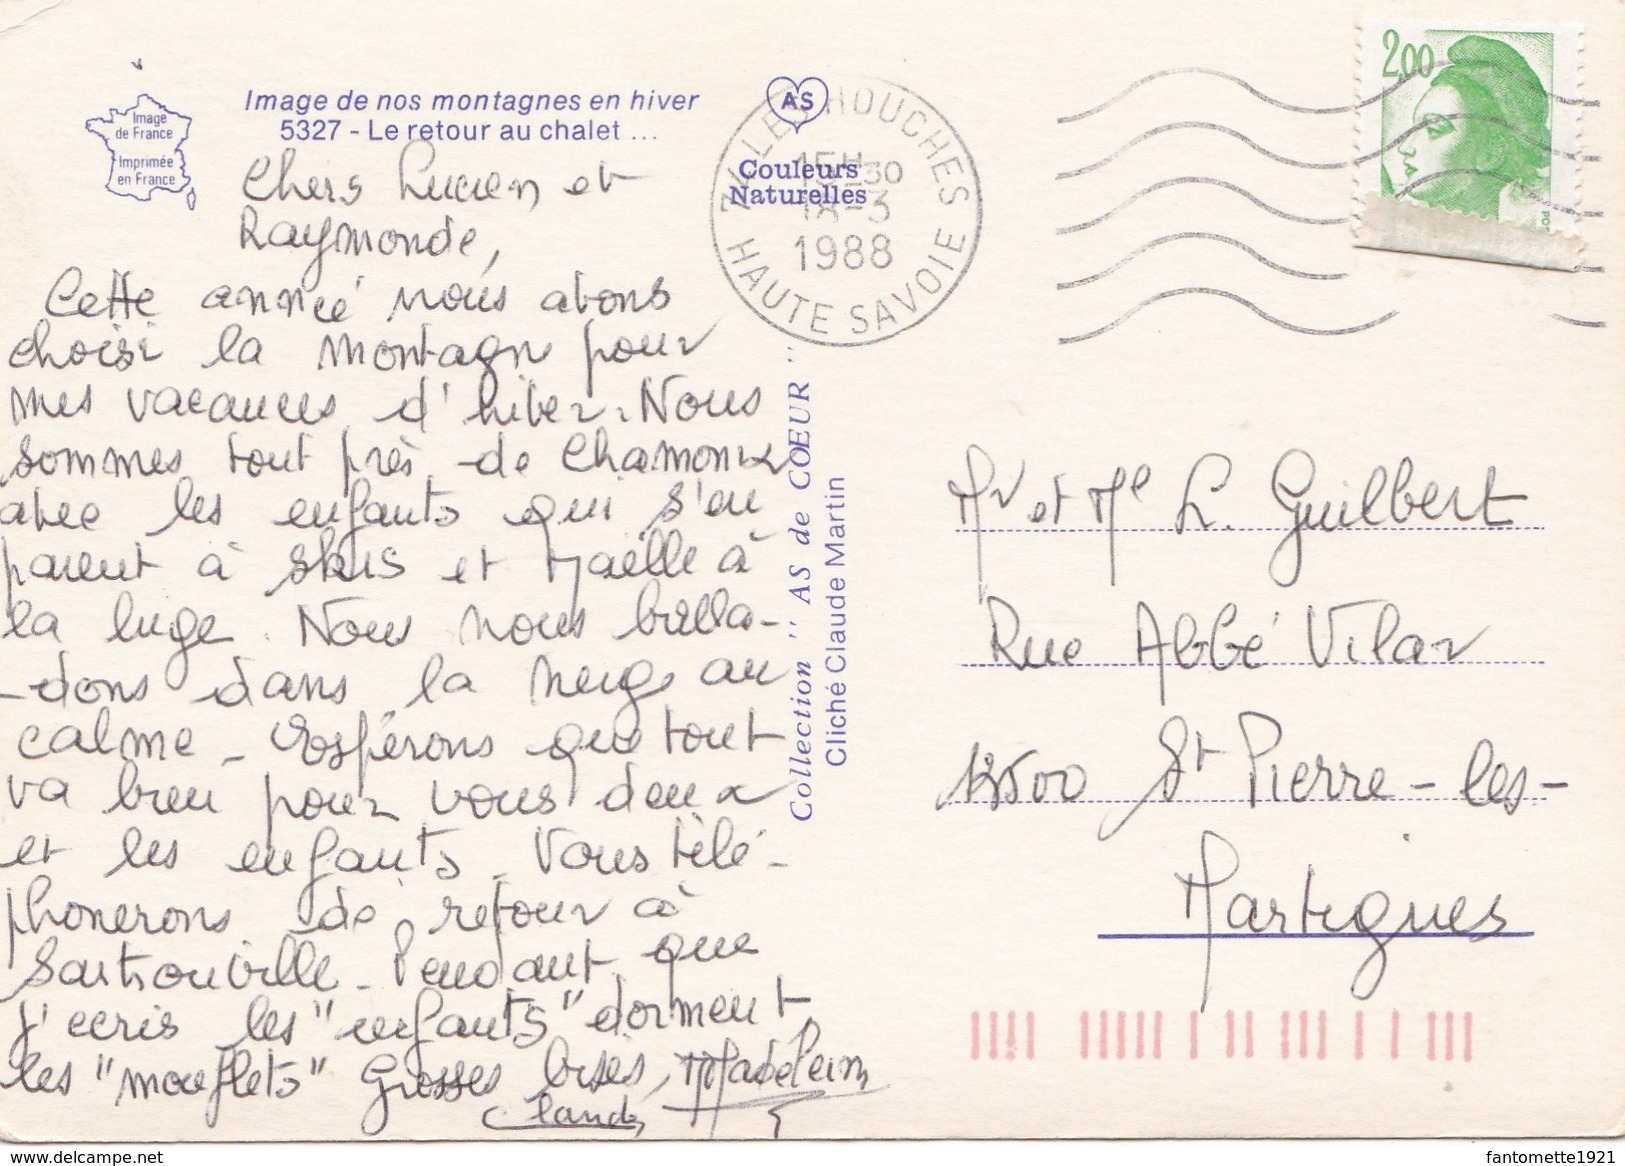 Image de nos montagnes en hiver
5327 - Le retour au chalet ...
Image
de France
Imprimée
en France
AS
Couleurs
Naturelles
74 LES HOUCHES
15H30
18-3
1988
HAUTE SAVOIE
2,00
Chers Lucien et
Raymonde,
Cette année nous avons
choisi la montagne pour
mes vacances d'hiver. Nous
sommes tout près de Chamonix
avec les enfants qui s'en
paient à skis et Maëlle à
la luge. Nous nous balla-
-dons dans la neige au
calme - Espérons que tout
va bien pour vous deux
et les enfants. Vous télé-
phonerons de retour à
Sartrouville - Pendant que
j'écris les "enfants" dorment,
les "mouflets" Grosses bises, Madeleine
Claude
Collection " AS de CŒUR "
Cliché Claude Martin
Mr et Me L. Guilbert
Rue Abbé Vilar
13500 St Pierre-les-
Martigues
www.delcampe.net
fantomette1921